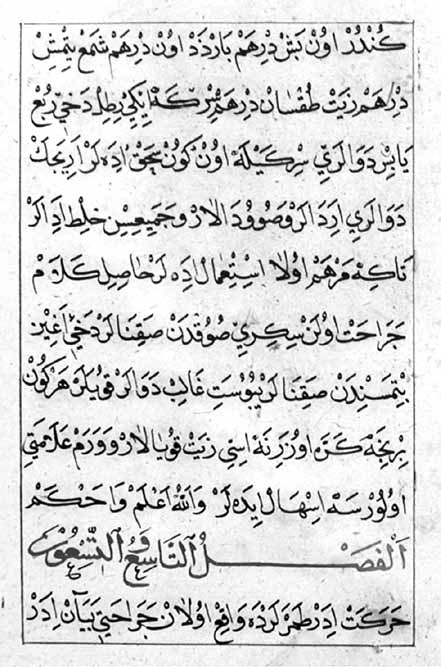 كُنْدُرْ اُونْ بَشْ دِرْهَمْ بَارْزَدْ اُونْ دِرْهَمْ شَمْعْ يِتْمِشْ
دِرْهَمْ زَيْتْ طُقْسَانْ دِرْهَمْ سِرْكَهْ اِيكِي رِطِلْ دَخِي رُبْعْ
يَابِسْ دَوَالَرِي سِرْكَيْلَهْ اُونْ كُونْ سَحْقْ اِدَهْ لَرْ اَرِيجَكْ
دَوَالَرِي اِرِدَ الَرْ وَصُووُدَ الَارْ وَجَمِيعِسِنْ خَلْطْ اِدَ الَرْ
تَاكِهْ مَرْهَمْ اُولَا اِسْتِعْمَالْ اِدَهْ لَرْ حَاصِلِ كَلَامْ
جَرَاحَتْ اُولَنْ سِكِرِي صُوُقْدَنْ صَقِنَا لَرْ دَخِي اَغِيزْ
بِتْمَسِنْدَنْ صَقِنَا لَرْ يُبُوسَتِ غَالِبْ دَوَالَرْ قُويَلَرْ هَرْ كُونْ
بِرْنِجَهْ كَزَّهْ اُوزَرِنَهْ اِسِّي زَيْتْ قُويَالَارْ وَوَرَمْ عَلَامَتِي
اُولُورْسَهْ اِسْهَالْ اِيدَهْ لَرْ وَاللّٰهُ اَعْلَمْ وَاَحْكَمْ
اَلْفَصْلُ التَّاسِعُ وَالتِّسْعُونَ
حَرَكَتْ اِدَرْ طَمَرْلَرْدَهْ وَاقِعْ اُولَانْ جَرَاحَتِي بَيَانْ اِدَرْ